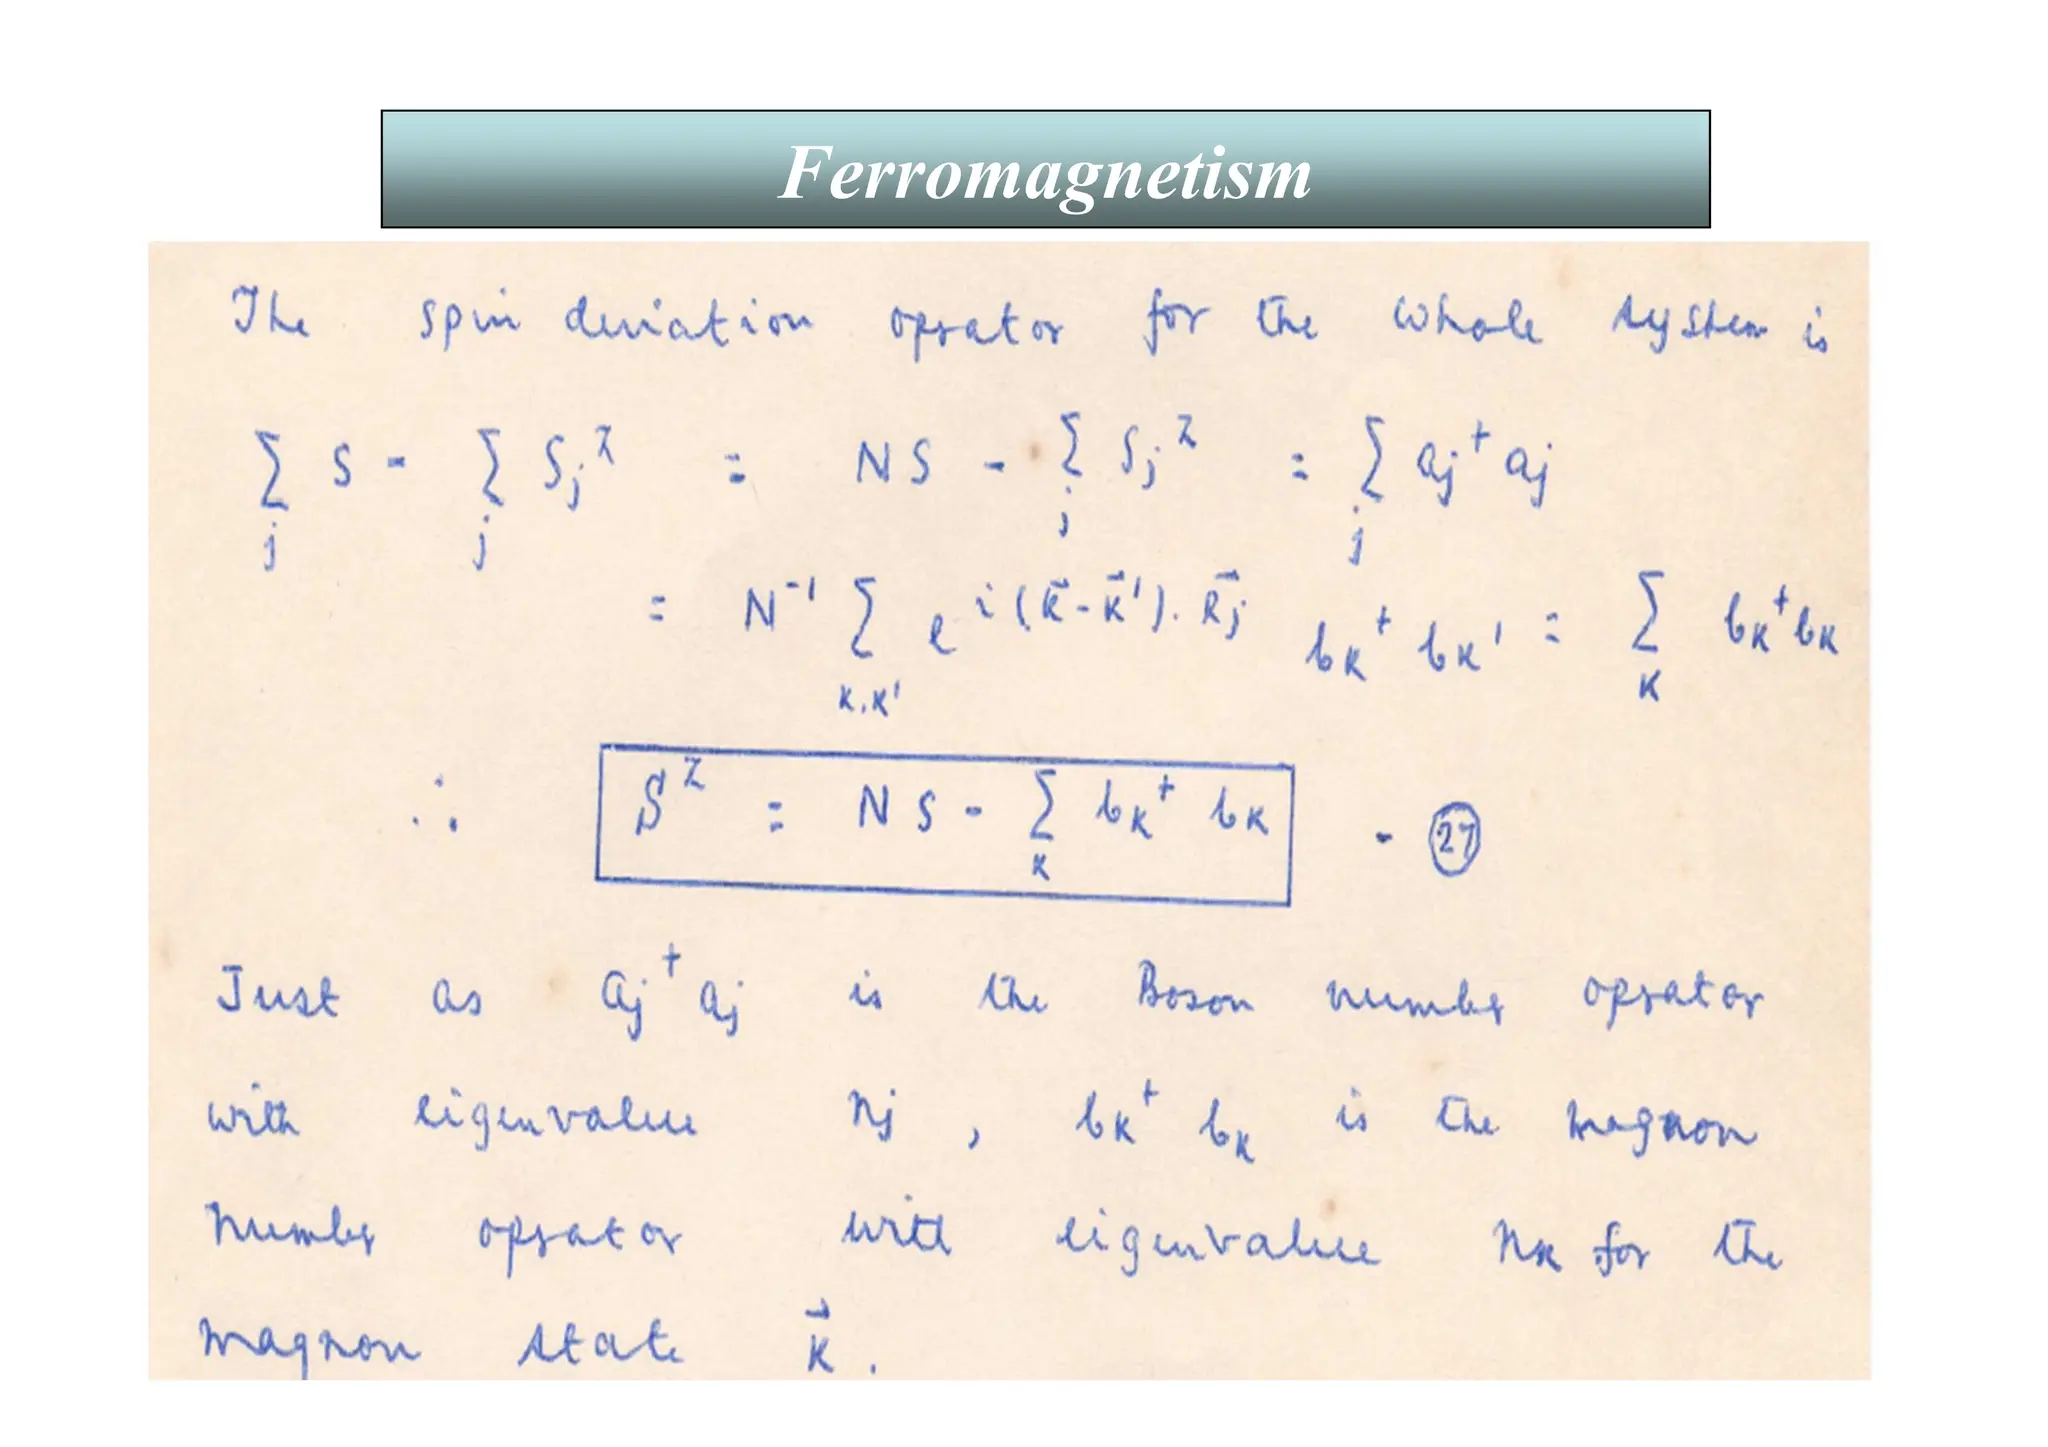 Ferromagnetism
The spin deviation oprator for the whole system is
∑_j S - ∑_j S_j^z = NS - ∑_j S_j^z = ∑_j a_j^+ a_j
= N^-1 ∑_k,k' e^i(k⃗-k⃗').R⃗j b_k^+ b_k' = ∑_k b_k^+ b_k
∴ S^z = NS - ∑_k b_k^+ b_k - 27
Just as a_j^+ a_j is the Boson number oprator
with eigenvalue n_j , b_k^+ b_k is the magnon
number oprator with eigenvalue n_k for the
magnon state k⃗.